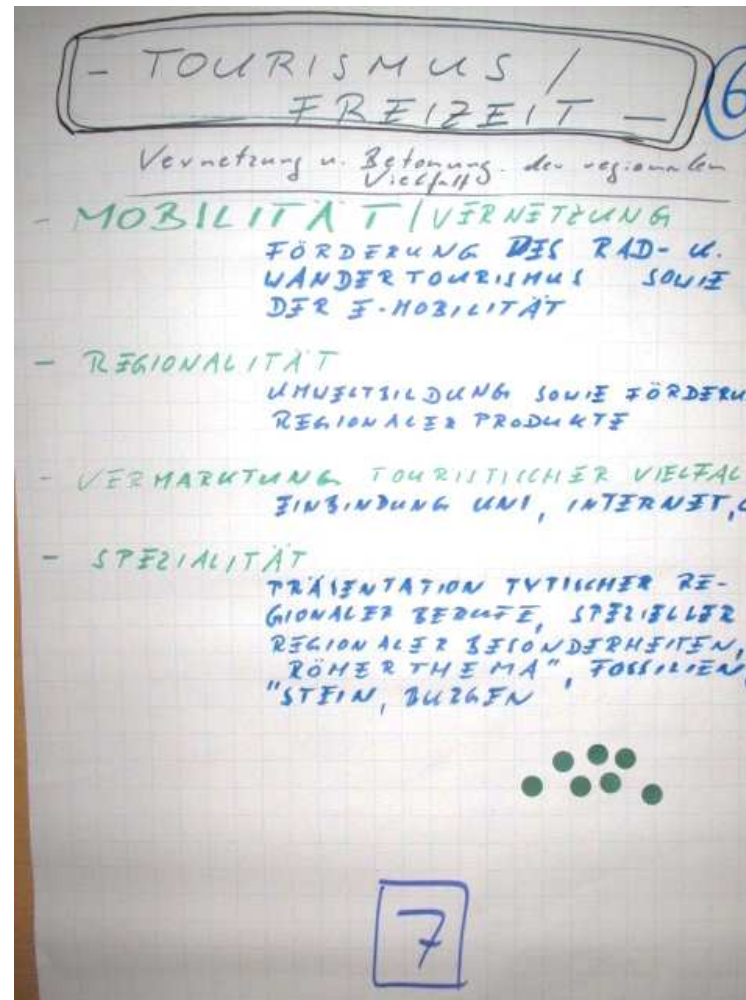 - TOURISMUS /
FREIZEIT -
6
Vernetzung u. Betonung der regionalen
Vielfalt
- MOBILITÄT / VERNETZUNG
FÖRDERUNG DES RAD- U.
WANDERTOURISMUS SOWIE
DER E-MOBILITÄT
- REGIONALITÄT
UMWELTBILDUNG SOWIE FÖRDERU
REGIONALER PRODUKTE
- VERMARKTUNG TOURISTISCHER VIELFAL
EINBINDUNG UNI, INTERNET,
- SPEZIALITÄT
PRÄSENTATION TYPISCHER RE-
GIONALER BERUFE, SPEZIELLER
REGIONALER BESONDERHEITEN,
"RÖMERTHEMA", FOSSILIEN,
"STEIN, BURGEN
7